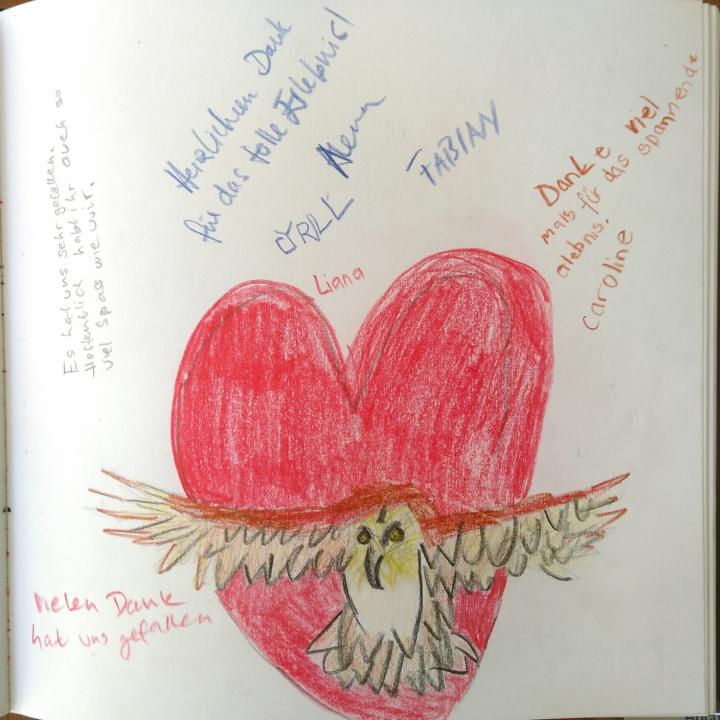 Es hat uns sehr gefallen.
Hoffentlich habt ihr auch so
viel spass wie wir.
Herzlichen Dank
für das tolle Erlebnis!
FABIAN
Danke viel
mals für das spannende
alebnis.
Caroline
Liana
Vielen Dank
hat uns gefallen